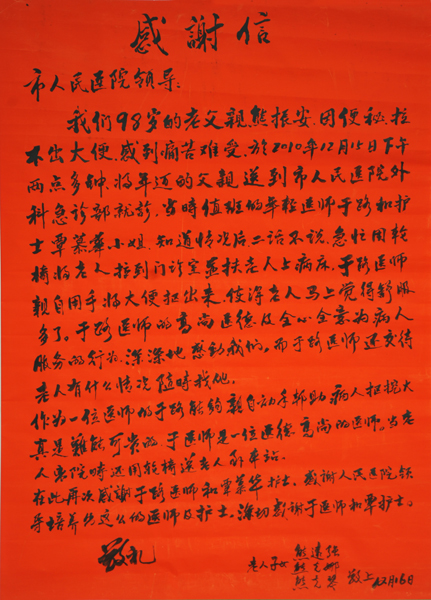 感謝信
市人民医院领导：
我们98岁的老父亲熊振安，因便秘，拉
不出大便，感到痛苦难受，於2010年12月15日下午
两点多钟，将年迈的父亲送到市人民医院外
科急诊部就诊，当時值班的年轻医师于路和护
士覃慕華小姐，知道情况后，二话不说，急忙用轮
椅将老人拉到门诊室並扶老人上病床，于路医师
親自用手将大便抠出来，使得老人马上觉得舒服
多了。于路医师的高尚医德及全心全意为病人
服务的行为，深深地感动我们。而于路医师还交待
老人有什么情况随時找他。
作为一位医师的于路能够親自动手帮助病人抠大
真是难能可贵的，于医师是一位医德高尚的医师，当老
人出院時还用轮椅送老人到車站。
在此再次感謝于路医师和覃慕华护士。感谢人民医院领
导培养出这么好医师及护士。深切感谢于医师和覃护士。
敬礼
老人子女
熊
熊
熊
敬上 12月16日